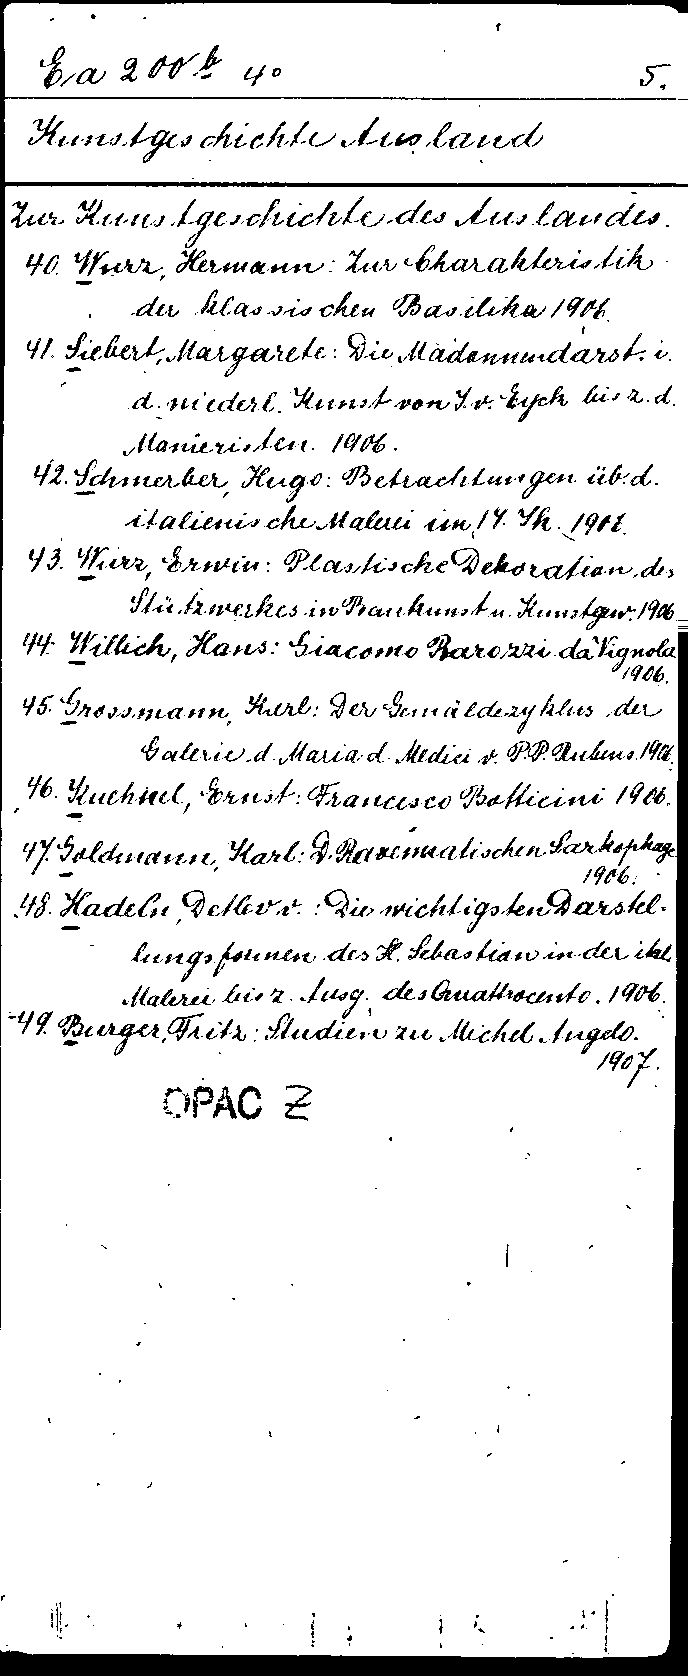 Ea 200 b 4° 5.
Kunstgeschichte Ausland
Zur Kunstgeschichte des Auslandes.
40. Wurz, Hermann: Zur Charakteristik
der klassischen Basilika 1906.
41. Siebert, Margarete: Die Madonnendarst. i.
d. niederl. Kunst von J. v. Eyck bis z. d.
Manieristen. 1906.
42. Schmerber, Hugo: Betrachtungen üb. d.
italienische Malerei im 17. Jh. 1906.
43. Wurz, Erwin: Plastische Dekoration des
Stützwerkes in Baukunst u. Kunstgew. 1906
44. Willich, Hans: Giacomo Barozzi da Vignola
1906.
45. Grossmann, Karl: Der Gemäldezyklus der
Galerie d. Maria d. Medici v. P. P. Rubens. 1906.
46. Kuehnel, Ernst: Francesco Botticini 1906.
47. Goldmann, Karl: D. Ravennatischen Sarkophage
1906.
48. Hadeln, Detlev v.: Die wichtigsten Darstel-
lungsformen des H. Sebastian in der ital.
Malerei bis z. Ausg. des Quattrocento. 1906.
49. Burger, Fritz: Studien zu Michel Angelo.
1907.
OPAC Z